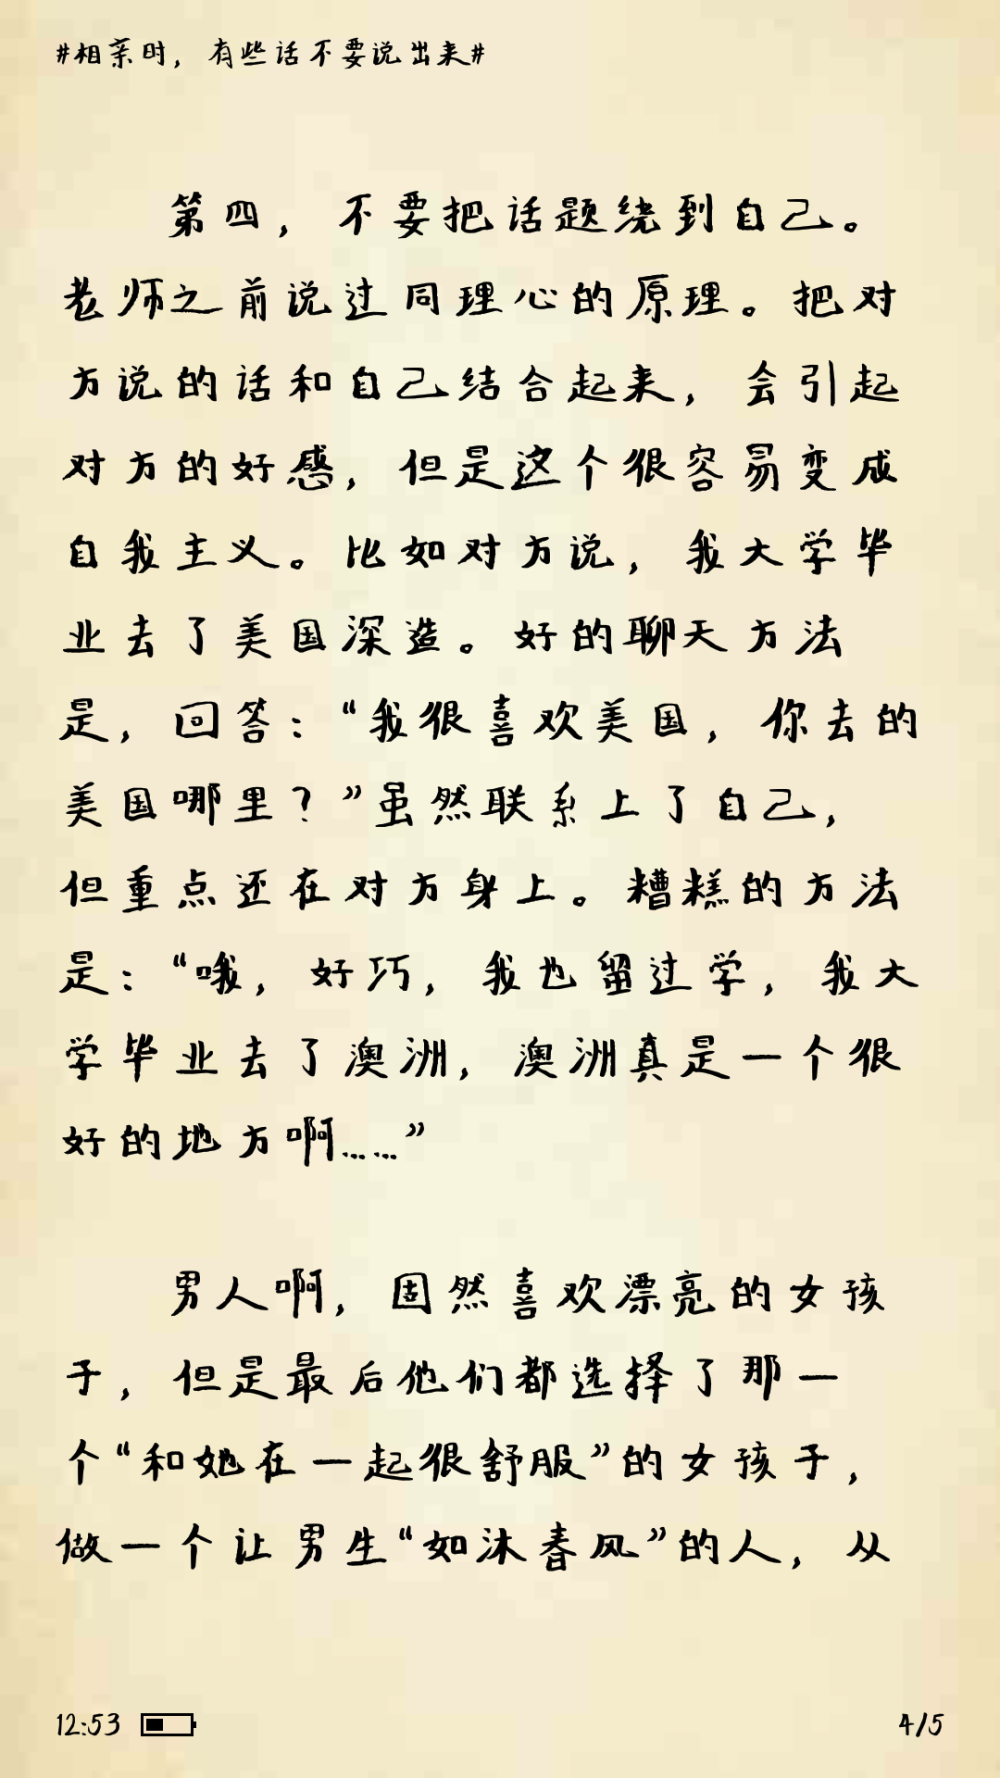 #相亲时，有些话不要说出来#
第四，不要把话题绕到自己。
老师之前说过同理心的原理。把对
方说的话和自己结合起来，会引起
对方的好感，但是这个很容易变成
自我主义。比如对方说，我大学毕
业去了美国深造。好的聊天方法
是，回答：“我很喜欢美国，你去的
美国哪里？”虽然联系上了自己，
但重点还在对方身上。糟糕的方法
是：“哦，好巧，我也留过学，我大
学毕业去了澳洲，澳洲真是一个很
好的地方啊……”
男人啊，固然喜欢漂亮的女孩
子，但是最后他们都选择了那一
个“和她在一起很舒服”的女孩子，
做一个让男生“如沐春风”的人，从
12:53 4/5